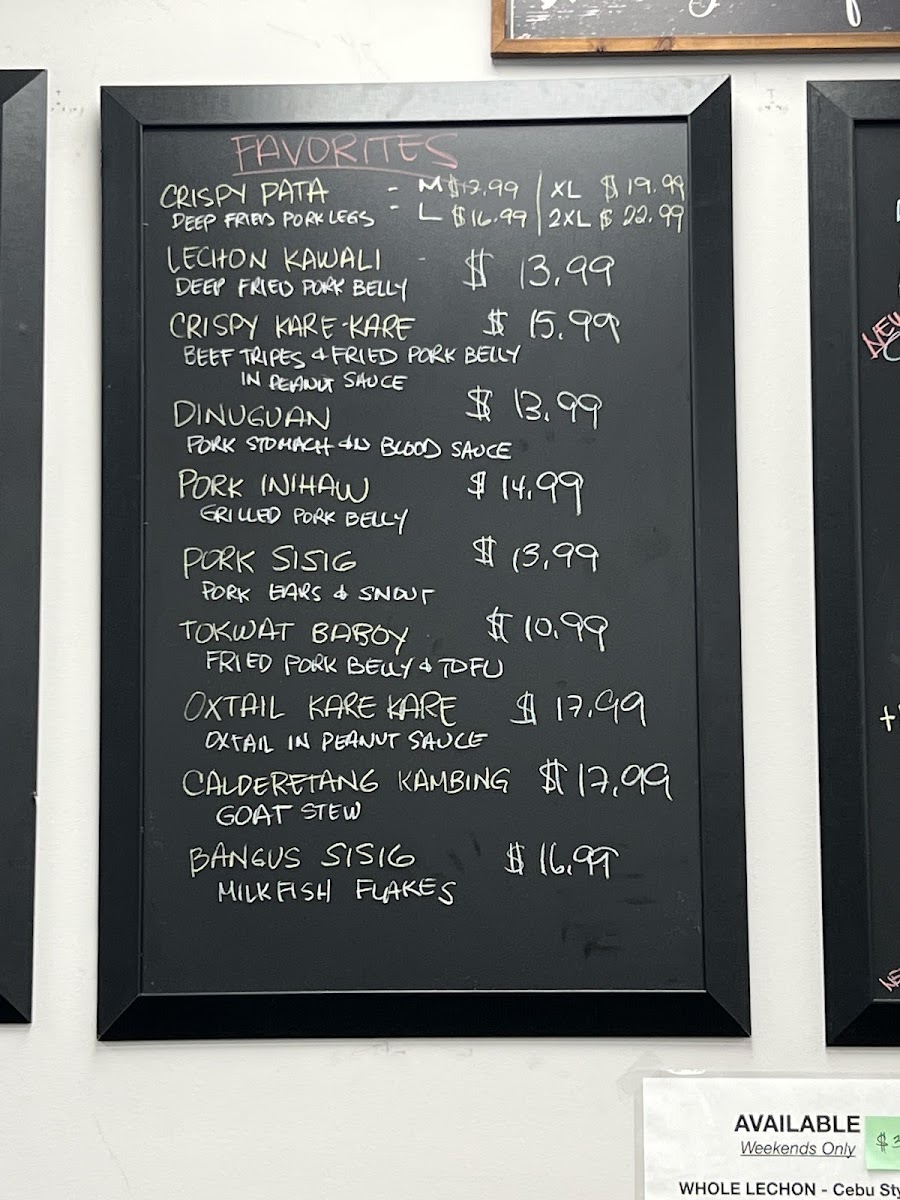 FAVORITES
CRISPY PATA - M $12.99 | XL $19.99
DEEP FRIED PORK LEGS - L $16.99 | 2XL $22.99
LECHON KAWALI - $13.99
DEEP FRIED PORK BELLY
CRISPY KARE-KARE $15.99
BEEF TRIPES & FRIED PORK BELLY
IN PEANUT SAUCE
DINUGUAN $13.99
PORK STOMACH IN BLOOD SAUCE
PORK INIHAW $14.99
GRILLED PORK BELLY
PORK SISIG $13.99
PORK EARS & SNOUT
TOKWAT BABOY $10.99
FRIED PORK BELLY & TOFU
OXTAIL KARE KARE $17.99
OXTAIL IN PEANUT SAUCE
CALDERETANG KAMBING $17.99
GOAT STEW
BANGUS SISIG $16.99
MILKFISH FLAKES
NEW
AVAILABLE
Weekends Only
WHOLE LECHON - Cebu